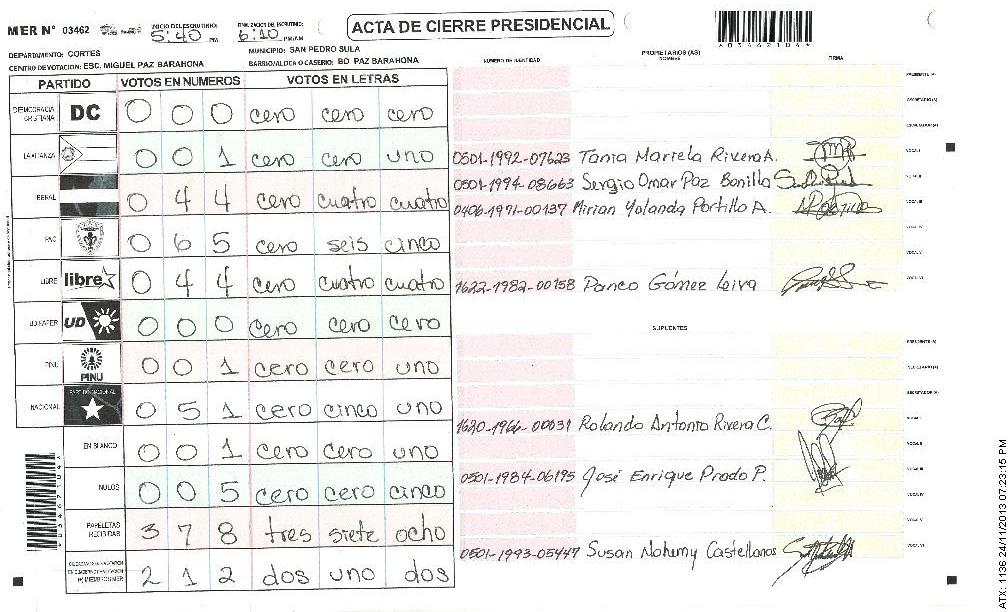 MER N° 03462
INICIO DEL ESCRUTINIO: 5:40 PM
FINALIZACION DEL ESCRUTINIO: 6:10 PM/AM
ACTA DE CIERRE PRESIDENCIAL
A03462104A
DEPARTAMENTO: CORTES
MUNICIPIO: SAN PEDRO SULA
CENTRO DE VOTACION: ESC. MIGUEL PAZ BARAHONA
BARRIO/ALDEA O CASERIO: BO PAZ BARAHONA
PARTIDO VOTOS EN NUMEROS VOTOS EN LETRAS
DEMOCRACIA CRISTIANA DC 0 0 0 cero cero cero
LA ALIANZA 0 0 1 cero cero uno
LIBERAL 0 4 4 cero cuatro cuatro
PAC 0 6 5 cero seis cinco
LIBRE libre 0 4 4 cero cuatro cuatro
UD/FAPER UD 0 0 0 cero cero cero
PINU PINU 0 0 1 cero cero uno
NACIONAL PARTIDO NACIONAL 0 5 1 cero cinco uno
EN BLANCO 0 0 1 cero cero uno
NULOS 0 0 5 cero cero cinco
PAPELETAS RECIBIDAS 3 7 8 tres siete ocho
(+) MIEMBROS MER 2 1 2 dos uno dos
PROPIETARIOS (AS)
NUMERO DE IDENTIDAD NOMBRE FIRMA
PRESIDENTE (A)
SECRETARIO (A)
ESCRUTADOR (A)
0501-1992-07623 Tania Mariela Rivera A. VOCAL I
0501-1994-08663 Sergio Omar Paz Bonilla VOCAL II
0406-1971-00137 Mirian Yolanda Portillo A. VOCAL III
VOCAL IV
VOCAL V
1622-1982-00158 Danco Gómez Leiva VOCAL VI
SUPLENTES
PRESIDENTE (A)
SECRETARIO (A)
ESCRUTADOR (A)
1620-1966-00031 Rolando Antonio Rivera C. VOCAL I
VOCAL II
0501-1984-06195 José Enrique Prado P. VOCAL III
VOCAL IV
VOCAL V
0501-1993-05447 Susan Nohemy Castellanos VOCAL VI
ATX: 1136 24/11/2013 07:23:15 PM